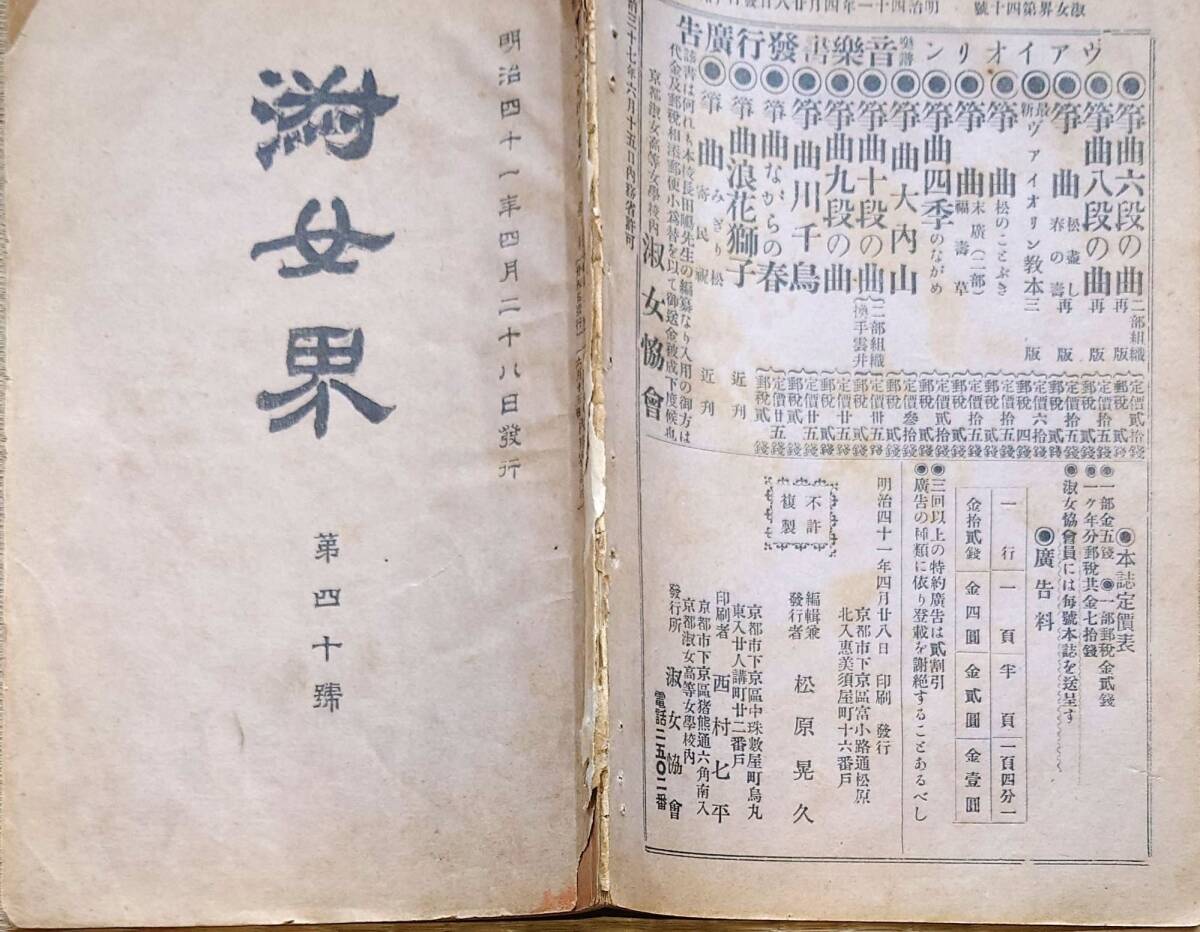 淑女界第四十號 明治四十一年四月廿八日發行
ヴアイオリン樂譜音樂書發行廣告
◉箏曲六段の曲 再版 二部組織 定價貳拾錢 郵稅貳錢
◉箏曲八段の曲 再版 定價拾五錢 郵稅貳錢
◉箏曲 松盡し 春の壽 再版 定價拾五錢 郵稅貳錢
◉最新ヴァイオリン教本 三版 定價六拾錢 郵稅四錢
◉箏曲 松のことぶき
◉箏曲 末廣(二部) 福壽草
◉箏曲四季のながめ
◉箏曲大內山
◉箏曲十段の曲 二部組織 換手雲井
◉箏曲九段の曲
◉箏曲川千鳥
◉箏曲ながらの春
◉箏曲浪花獅子 近刊
◉箏曲 みぎり松 寄民祝 近刊
該書は何れも本校長田
先生の編纂なり入用の御方は
代金及郵稅相添郵便小爲替を以て御送金被成下度候也
京都淑女高等女學校內 淑女協會
治三十七年六月十五日內務省許可
◉本誌定價表
◉一部金五錢 ◉一部郵稅金貳錢
◉一ヶ年分郵稅共金七拾錢
◉淑女協會員には每號本誌を送呈す
◉廣告料
一行 一頁 半頁 一頁四分一
金拾貳錢 金四圓 金貳圓 金壹圓
◉三回以上の特約廣告は貳割引
◉廣告の種類に依り登載を謝絕することあるべし
明治四十一年四月廿八日 印刷 發行
不許複製
京都市下京區富小路通松原
北入惠美須屋町十六番戶
編輯兼發行者 松原晃久
京都市下京區中珠數屋町烏丸
東入廿人講町廿二番戶
印刷者 西村七平
京都市下京區猪熊通六角南入
京都淑女高等女學校內
發行所 淑女協會
電話二五〇二番
明治四十一年四月二十八日發行
淑女界
第四十號